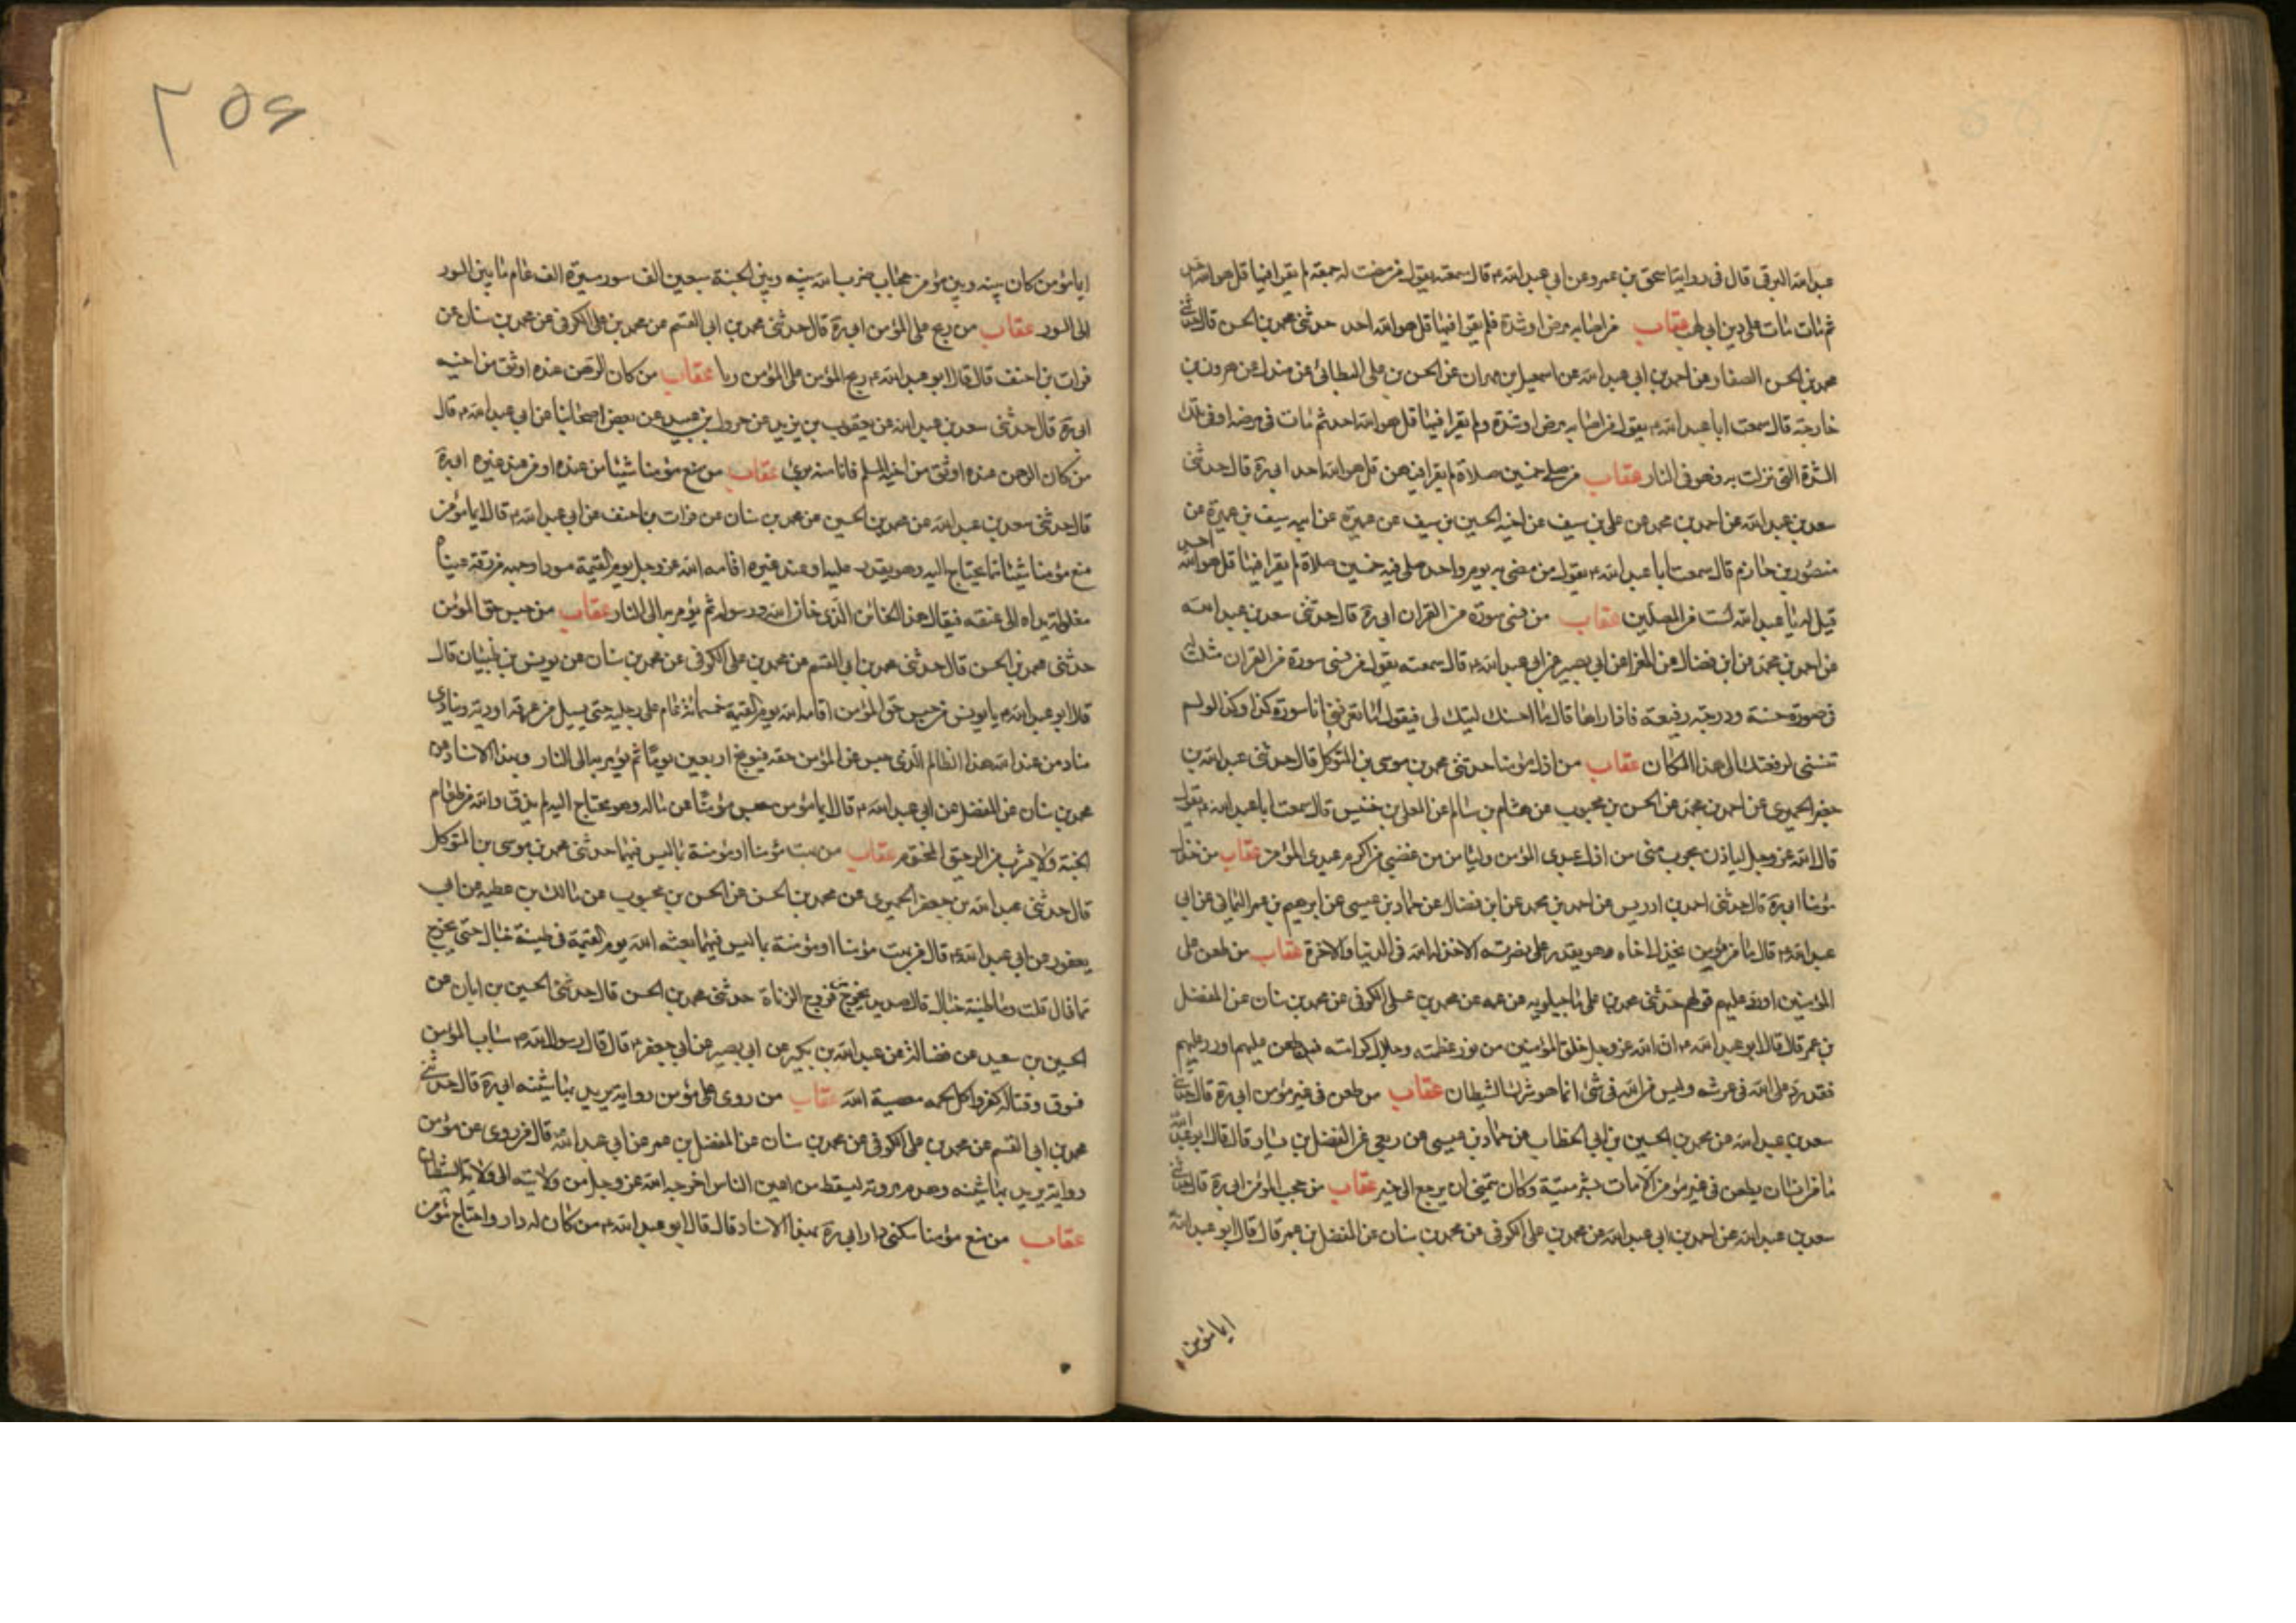 عبد الله البرقي قال في رواية اسحق بن عمر وعن ابي عبد الله ع قال سمعته يقول من مضت له جمعة لم يقرا فيها قل هو الله احد
ثم مات مات على دين ابي لهب عقاب من اصابه مرض او شدة فلم يقرا فيها قل هو الله احد حدثني محمد بن الحسن قال حدثني
محمد بن الحسن الصفار عن احمد بن ابي عبد الله عن اسمعيل بن مهران عن الحسن بن علي البطائني عن مندل عن هرون بن
خارجة قال سمعت ابا عبد الله ع يقول من اصابه مرض او شدة ولم يقرا فيها قل هو الله احد ثم مات في مرضه او في تلك
الشدة التي نزلت به فهو في النار عقاب من صلى خمسين صلاة لم يقرا فيهن قل هو الله احد ابي ره قال حدثني
سعد بن عبد الله عن احمد بن محمد عن علي بن سيف عن اخيه الحسين بن سيف عن عميرة عن ابيه سيف بن عميرة عن
منصور بن حازم قال سمعت ابا عبد الله ع يقول من مضى به يوم واحد صلى فيه خمسين صلاة لم يقرا فيها قل هو الله احد
قيل له يا عبد الله لست من المصلين عقاب من نسى سورة من القران ابي ره قال حدثني سعد بن عبد الله
عن احمد بن محمد عن ابن فضال عن المغرا عن ابي بصير عن ابي عبد الله ع قال سمعته يقول من نسى سورة من القران مثلت له
في صورة حسنة ودرجة رفيعة فاذا راها قال ما احسنك ليتك لي فيقول اما تعرفني انا سورة كذا وكذا لو لم
تنسني لرفعتك الى هذا المكان عقاب من اذل مؤمنا حدثني محمد بن موسى بن المتوكل قال حدثني عبد الله بن
جعفر الحميري عن احمد بن محمد عن الحسن بن محبوب عن هشام بن سالم عن المعلى بن خنيس قال سمعت ابا عبد الله ع يقول
قال الله عز وجل لياذن بحرب مني من اذل عبدي المؤمن وليامن من غضبي من اكرم عبدي المؤمن عقاب من خذل
مؤمنا ابي ره قال حدثني احمد بن ادريس عن احمد بن محمد عن ابن فضال عن حماد بن عيسى عن ابرهيم بن عمر اليماني عن ابي
عبد الله ع قال ما من مؤمن يخذل اخاه وهو يقدر على نصرته الا خذله الله في الدنيا والاخرة عقاب من طعن على
المؤمنين او رد عليهم قولهم حدثني محمد بن علي ماجيلويه عن عمه عن محمد بن علي الكوفي عن محمد بن سنان عن المفضل
بن عمر قال قال ابو عبد الله ع ان الله عز وجل خلق المؤمنين من نور عظمته وجلال كبريائه فمن طعن عليهم او رد عليهم
فقد رد على الله في عرشه وليس من الله في شئ انما هو شرك الشيطان عقاب من طعن في عين مؤمن ابي ره قال حدثني
سعد بن عبد الله عن محمد بن الحسين بن ابي الخطاب عن حماد بن عيسى عن ربعي عن الفضيل بن يسار قال قال ابو عبد الله
ما من انسان يطعن في عين مؤمن الا مات بشر ميتة وكان يتمنى ان يرجع الى خير عقاب من حجب المؤمن ابي ره قال حدثني
سعد بن عبد الله عن احمد بن ابي عبد الله عن محمد بن علي الكوفي عن محمد بن سنان عن المفضل بن عمر قال قال ابو عبد الله
ايما مؤمن
۲۵۶
ايما مؤمن كان بينه وبين مؤمن حجاب ضرب الله بينه وبين الجنة سبعين الف سور مسيرة الف عام ما بين السور
الى السور عقاب من ربح على المؤمن ابي ره قال حدثني محمد بن ابي القسم عن محمد بن علي الكوفي عن محمد بن سنان عن
فرات بن احنف قال قال ابو عبد الله ع ربح المؤمن على المؤمن ربا عقاب من كان الرهن عنده اوثق من اخيه
ابي ره قال حدثني سعد بن عبد الله عن يعقوب بن يزيد عن مروك بن عبيد عن بعض اصحابنا عن ابي عبد الله ع قال
من كان الرهن عنده اوثق من اخيه المسلم فانا منه برئ عقاب من منع مؤمنا شيئا من عنده او من عند غيره ابي ره
قال حدثني سعد بن عبد الله عن محمد بن الحسين عن محمد بن سنان عن فرات بن احنف عن ابي عبد الله ع قال ايما مؤمن
منع مؤمنا شيئا مما يحتاج اليه وهو يقدر عليه او عند غيره اقامه الله عز وجل يوم القيمة مسودا وجهه مزرقة عيناه
مغلولة يداه الى عنقه فيقال هذا الخائن الذي خان الله ورسوله ثم يؤمر به الى النار عقاب من حبس حق المؤمن
حدثني محمد بن الحسن قال حدثني محمد بن ابي القسم عن محمد بن علي الكوفي عن محمد بن سنان عن يونس بن ظبيان قال
قال ابو عبد الله ع يا يونس من حبس حق المؤمن اقامه الله يوم القيمة خمسمائة عام على رجليه حتى يسيل من عرقه اودية وينادي
مناد من عند الله هذا الظالم الذي حبس عن المؤمن حقه فيوبخ اربعين يوما ثم يؤمر به الى النار وبهذا الاسناد عن
محمد بن سنان عن المفضل عن ابي عبد الله ع قال ايما مؤمن حبس مؤمنا عن ماله وهو محتاج اليه لم يذق والله من طعام
الجنة ولا يشرب من الرحيق المختوم عقاب من بهت مؤمنا او مؤمنة بما ليس فيهما حدثني محمد بن موسى بن المتوكل
قال حدثني عبد الله بن جعفر الحميري عن محمد بن الحسن عن الحسن بن محبوب عن مالك بن عطيه عن ابي
يعفور عن ابي عبد الله ع قال من بهت مؤمنا او مؤمنة بما ليس فيهما بعثه الله يوم القيمة في طينة خبال حتى يخرج
مما قال قلت وما طينة خبال قال صديد يخرج من فروج الزناة حدثني محمد بن الحسن قال حدثني الحسين بن ابان عن
الحسين بن سعيد عن فضالة عن عبد الله بن بكير عن ابي بصير عن ابي جعفر ع قال قال رسول الله ص سباب المؤمن
فسوق وقتاله كفر واكل لحمه معصية الله عقاب من روى على مؤمن رواية يريد بها شينه ابي ره قال حدثني
محمد بن ابي القسم عن محمد بن علي الكوفي عن محمد بن سنان عن المفضل بن عمر عن ابي عبد الله ع قال من روى عن مؤمن
رواية يريد بها شينه وهدم مروته ليسقط من اعين الناس اخرجه الله عز وجل من ولايته الى ولاية الشيطان
عقاب من منع مؤمنا سكنى دار ابي ره بهذا الاسناد قال قال ابو عبد الله ع من كان له دار واحتاج مؤمن